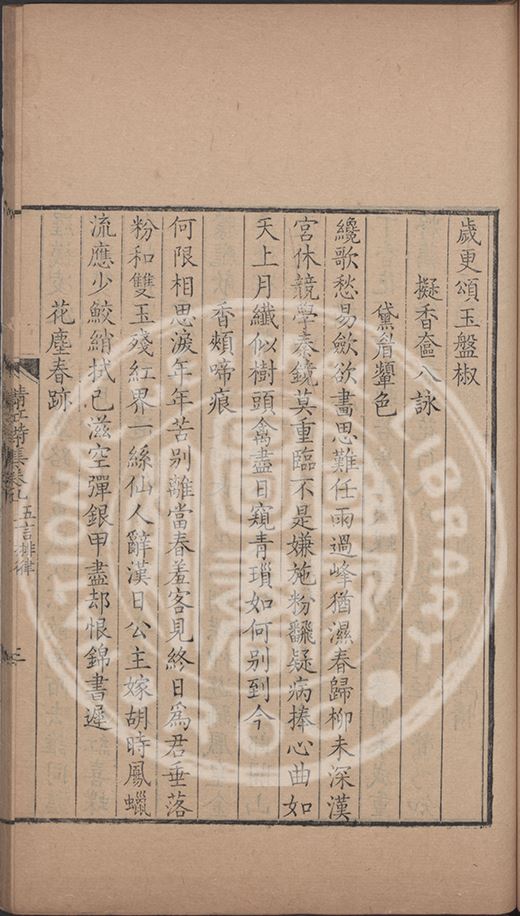 歲更頌玉盤椒
擬香奩八詠
黛眉顰色
纔歌愁易斂欲畫思難任雨過峰猶濕春歸柳未深漢
宮休競學秦鏡莫重臨不是嫌施粉翻疑病捧心曲如
天上月纖似樹頭禽盡日窺青瑣如何別到今
香頰啼痕
何限相思淚年年苦別離當春羞客見終日爲君垂落
粉和雙玉殘紅界一絲仙人辭漢日公主嫁胡時鳳蠟
流應少鮫綃拭已滋空彈銀甲盡却恨錦書遲
花塵春跡
五言排律